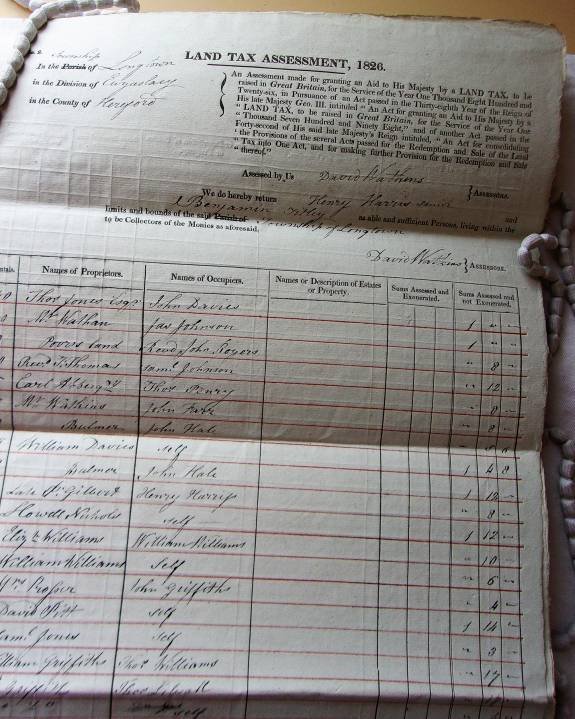 LAND TAX ASSESSMENT, 1826.
Township
In the Parish of Longtown
in the Division of Ewyaslacy
in the County of Hereford
An Assessment made for granting an Aid to His Majesty by a LAND TAX, to be
raised in Great Britain, for the Service of the Year One Thousand Eight Hundred and
Twenty-six, in Pursuance of an Act passed in the Thirty-eighth Year of the Reign of
His late Majesty Geo. III. intituled "An Act for granting an Aid to His Majesty by a
"LAND TAX, to be raised in Great Britain, for the Service of the Year One
"Thousand Seven Hundred and Ninety Eight," and of another Act passed in the
Forty-second of His said late Majesty's Reign, intituled, "An Act for consolidating
"the provisions of the several Acts passed for the Redemption and Sale of the Land
"Tax into One Act, and for making further Provision for the Redemption and Sale
"thereof."
Assessed by Us David Watkins ASSESSORS.
We do hereby return Henry Harris senior and
Benjamin as able and sufficient Persons, living within the
limits and bounds of the said Parish of Township of Longtown
to be Collectors of the Monies as aforesaid.
David Watkins ASSESSORS.
Names of Proprietors. Names of Occupiers. Names or Description of Estates or Property. Sums Assessed and Exonerated. Sums Assessed and not Exonerated.
Thos Jones Esqr John Davies
Mr Wathan Jas Johnson 1 " "
Poors Land Revd John Rogers 1 " "
Revd T. Thomas Saml Johnson " 8 "
Earl Aberg'y Thos Penry " 12 "
Mr Watkins John " 8 "
Bulmer John Hale " 8 "
William Davies self
Bulmer John Hale 1 4 8
Late Gilbert Henry Harris 1 12 "
Howell Nichols self " 8 "
Eliz Williams William Williams 1 12 "
William Williams self " 10 "
Wm Prosser John Griffiths " 6 "
David Pitt self " 4 "
Saml Jones self 1 14 "
William Griffiths Thos Williams " 3 "
Griffiths " 17 "
self